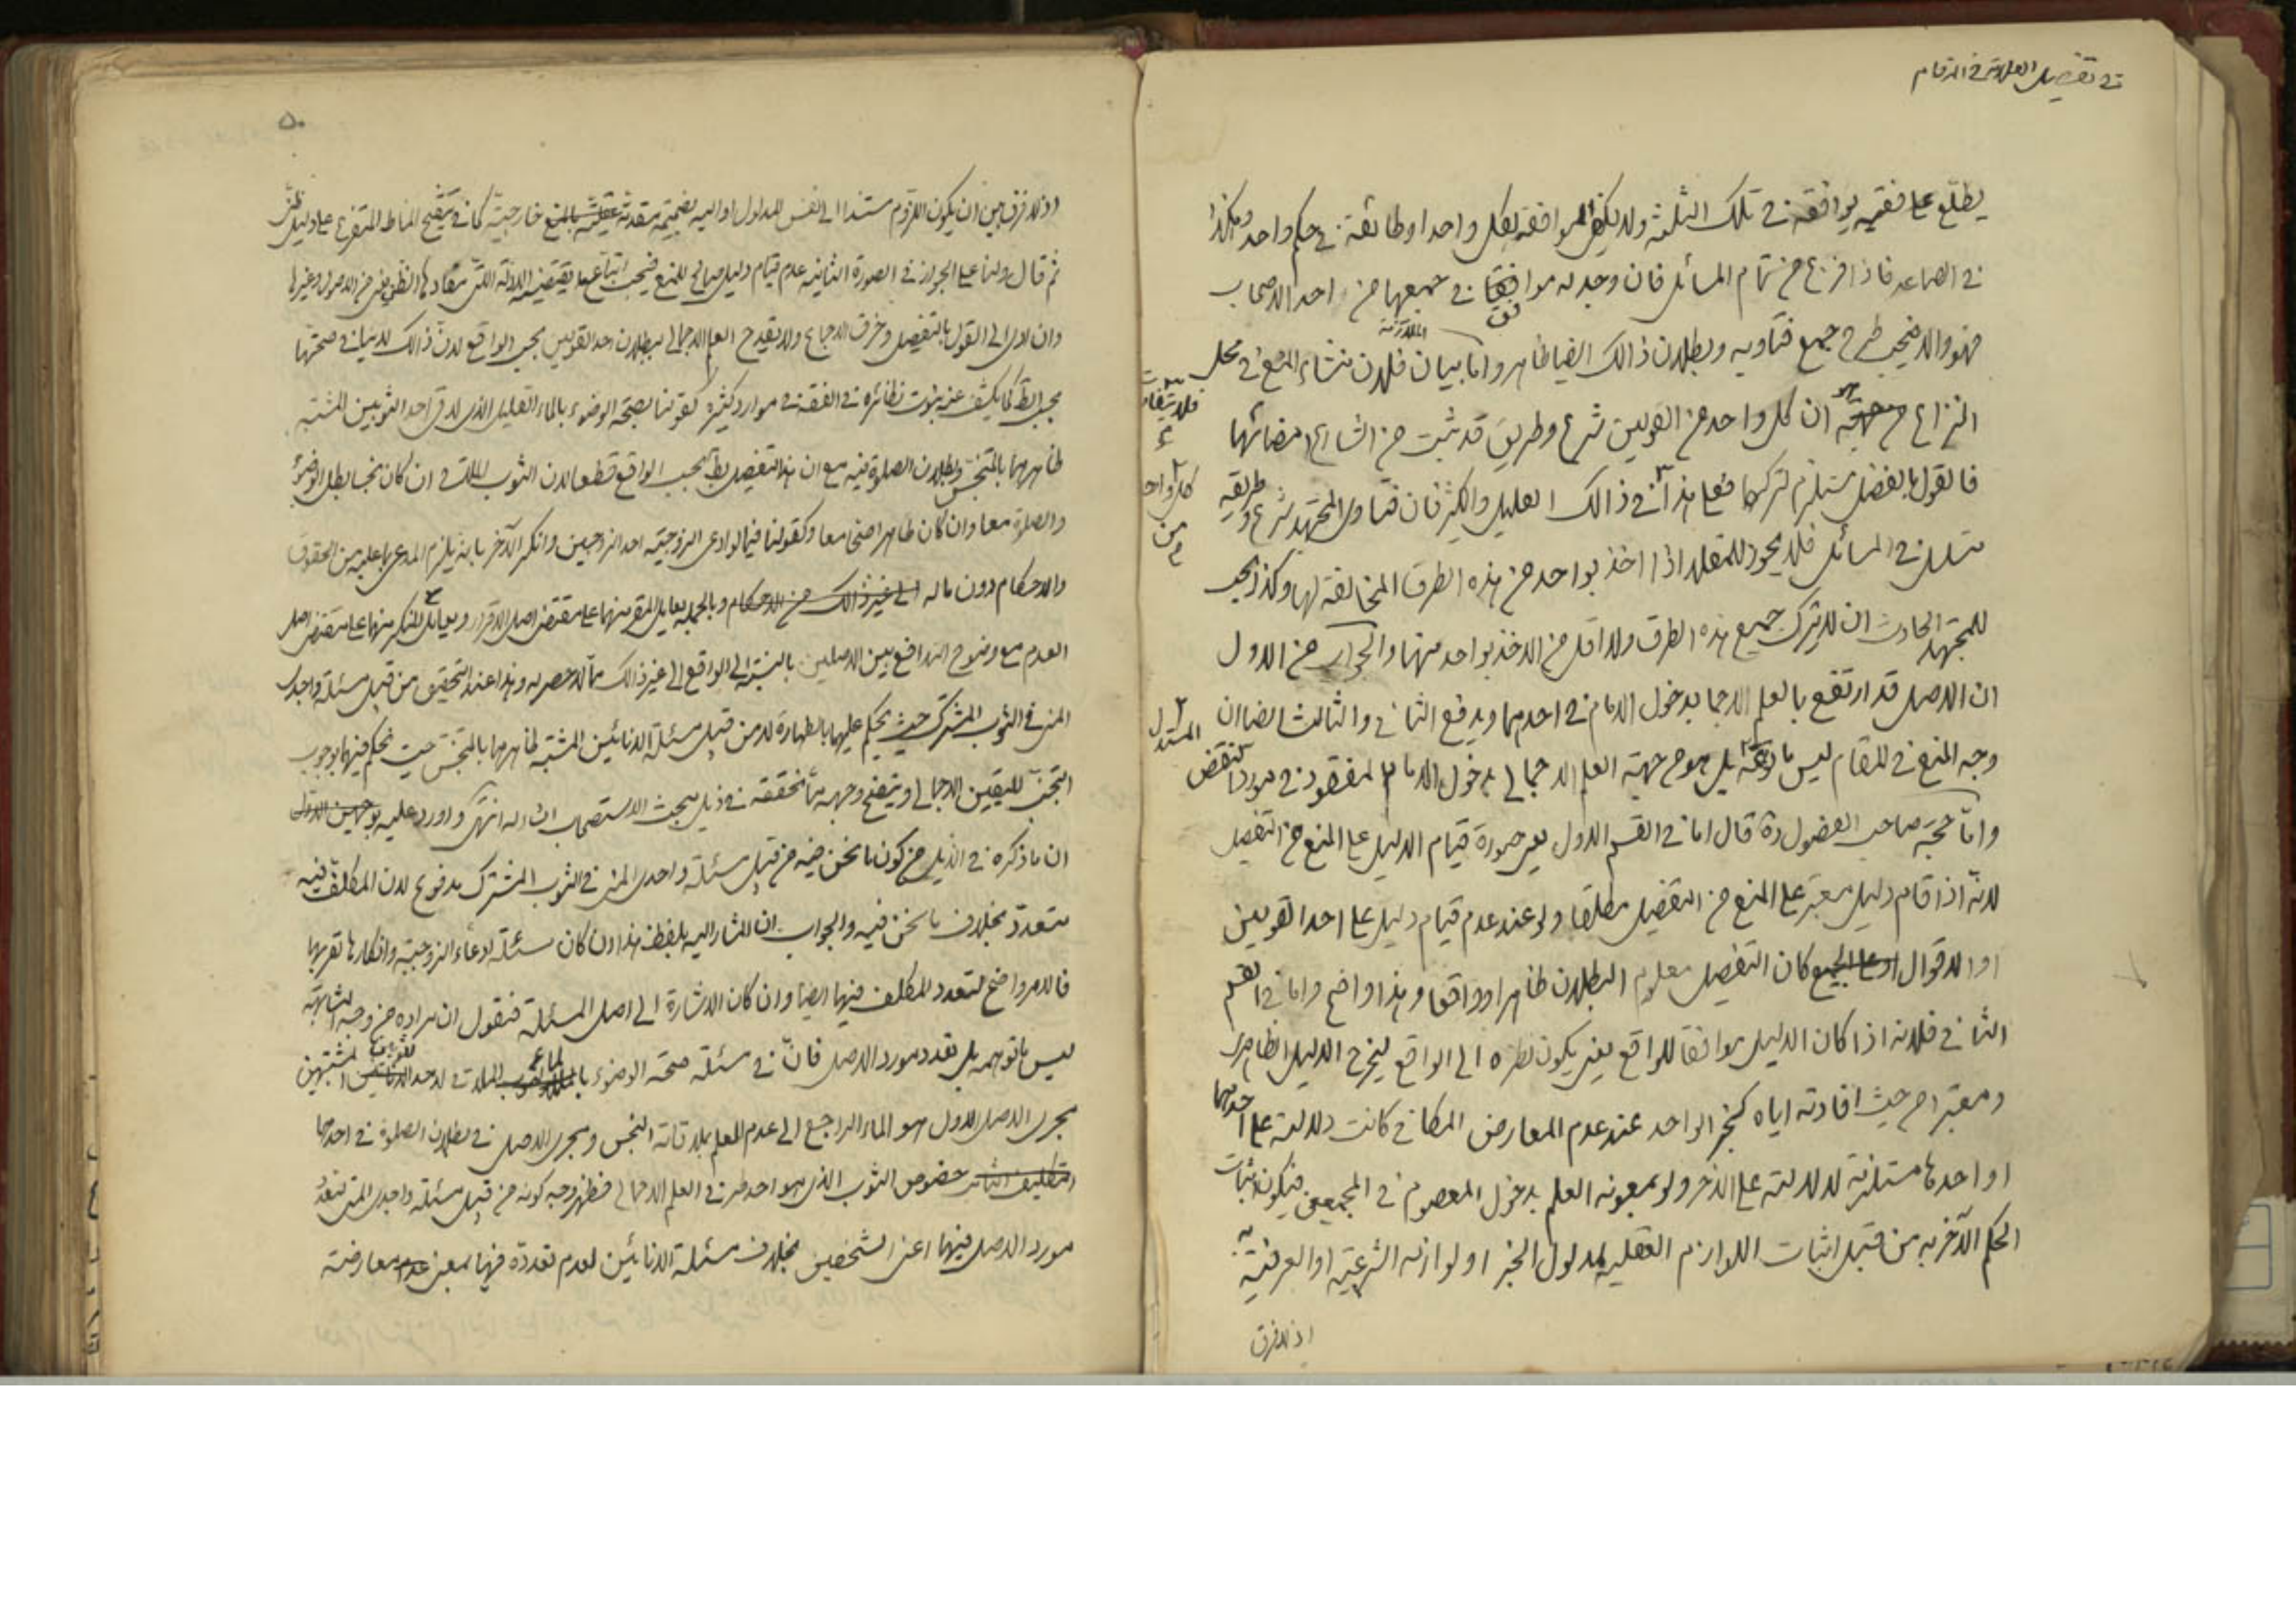 في تفصيل العلامة في المقام
يطلع على فقيه يوافقه في تلك الثلثة ولا يكفى الموافقة لكل واحد او طائفة في حكم واحد وهكذا
في الصاعد فاذا فرغ من تمام المسائل فان وجد له موافقا في جميعها من احد الاصحاب
فهو والا فيجب طرح جميع فتاويه وبطلان ذالك ايضا ظاهر واما بيان الملازمة فلان منشاء المنع في محل
النزاع هو ان كل واحد من القولين شرع وطريق قد ثبت من الشارع امضائها
فالقول بالفصل مستلزم لتركهما فعلى هذا في ذالك القليل والكثير فان فتاوى المجتهد شرع وطريقه
فلا يتفاوت
كل واحد من
في المسائل فلا يجوز للمقلد اذا اخذ بواحد من هذه الطرق المخالفة لها وكذا يجب
للمجتهد الحادث ان لا يترك جميع هذه الطرق ولا اقل من الاخذ بواحد منها والجواب من الاول
ان الاصل قد ارتفع بالعلم الاجما بدخول الامام في احدهما ويدفع الثاني والثالث ايضا ان
وجه المنع في المقام ليس ما ادعته بل هو من جهة العلم الاجمالي بدخول الامام المفقود في مورد النقض
المستدل
واما حجة صاحب الفصول ره قال اما في القسم الاول يعني صورة قيام الدليل على المنع من التفصيل
لانه اذا قام دليل معتبر على المنع من التفصيل مطلقا ولو عند عدم قيام دليل على احد القولين
او الاقوال كان التفصيل معلوم البطلان ظاهرا وواقعا وهذا واضح واما في القسم
الثاني فلانه اذا كان الدليل موافقا للواقع يعني يكون نظره الى الواقع ليخرج الدليل الظاهرى
ومعتبرا من حيث افادته اياه كخبر الواحد عند عدم المعارض المكافى كانت دلالته على احدهما
او احدها مستلزمة لدلالته على الاخر ولو بمعونة العلم بدخول المعصوم في المجمعين فيكون اثبات
الحكم الآخر به من قبيل اثبات اللوازم العقلية لمدلول الخبر او لوازمه الشرعية او العرفية به
اذ لا فرق
٥٠
اذ لا فرق بين ان يكون اللزوم مستندا الى نفس المدلول او اليه بضميمة مقدمة خارجية كما في تنقيح المناط المتفرع على دليل ظني
ثم قال ولنا على الجواز في الصورة الثانية عدم قيام دليل صالح للمنع فيجب اتباع ما يقتضيه الادلة التي مفادها الظن يعني من الاصول وغيرها
وان ادى الى القول بالتفصيل وخرق الاجماع ولا يقدح العلم الاجمالي ببطلان احد القولين بحسب الواقع لان ذالك لا ينافي صحتها
بحسب الظ كما يكشف عنه ثبوت نظائره في الفقه في موارد كثيرة كقولنا بصحة الوضوء بالماء القليل الذى لاقى احد الثوبين المشتبه
طاهرهما بالمتنجس وبطلان الصلوة فيه مع ان هذا التفصيل بط بحسب الواقع قطعا لان الثوب الملاقى ان كان نجسا بطل الوضوء
والصلوة معا وان كان طاهرا صحتا معا وكقولنا فيما لو ادعى الزوجية احد الزوجين وانكر الآخر بانه يلزم المدعى بما عليه من الحقوق
والاحكام دون ما له وبالجملة يعامل المقر منهما على مقتضى اصل الاقرار ويعامل المنكر منهما على مقتضى اصل
العدم مع وضوح التدافع بين الاصلين بالنسبة الى الواقع الى غير ذالك مما لا حصر له وهذا عند التحقيق من قبيل مسئلة واجدى
المنى في الثوب المشترك حيث يحكم عليهما بالطهارة لا من قبيل مسئلة الانائين المشتبه طاهرهما بالمتنجس حيث نحكم فيهما بوجوب
التجنب لليقين الاجمالي ويتضح وجهه بما نحققه في ذيل مبحث الاستصحاب ان شاء الله انتهى واورد عليه
ان ما ذكره في الذيل من كون ما نحن فيه من قبيل مسئلة واجدى المنى في الثوب المشترك مدفوع لان المكلف فيه
متعدد بخلاف ما نحن فيه والجواب ان المشار اليه بلفظ هذا ان كان مسئلة ادعاء الزوجية وانكارها
فالامر واضح لتعدد المكلف فيها ايضا وان كان الاشارة الى اصل المسئلة فنقول ان مراده من وجه المشابهة
ليس ما توهمه بل تعدد مورد الاصل فان في مسئلة صحة الوضوء بالماء الملاقى لاحد الثوبين المشتبهين
مجرى الاصل الاول هو الماء الراجع الى عدم العلم بملاقاته النجس ومجرى الاصل في بطلان الصلوة في احدهما
خصوص الثوب الذى هو احد طرفى العلم الاجمالي فظهر وجه كونه من قبيل مسئلة واجدى المنى لتعدد
مورد الاصل فيهما اعنى الشخصين بخلاف مسئلة الانائين لعدم تعدده فيها بمعنى معارضة